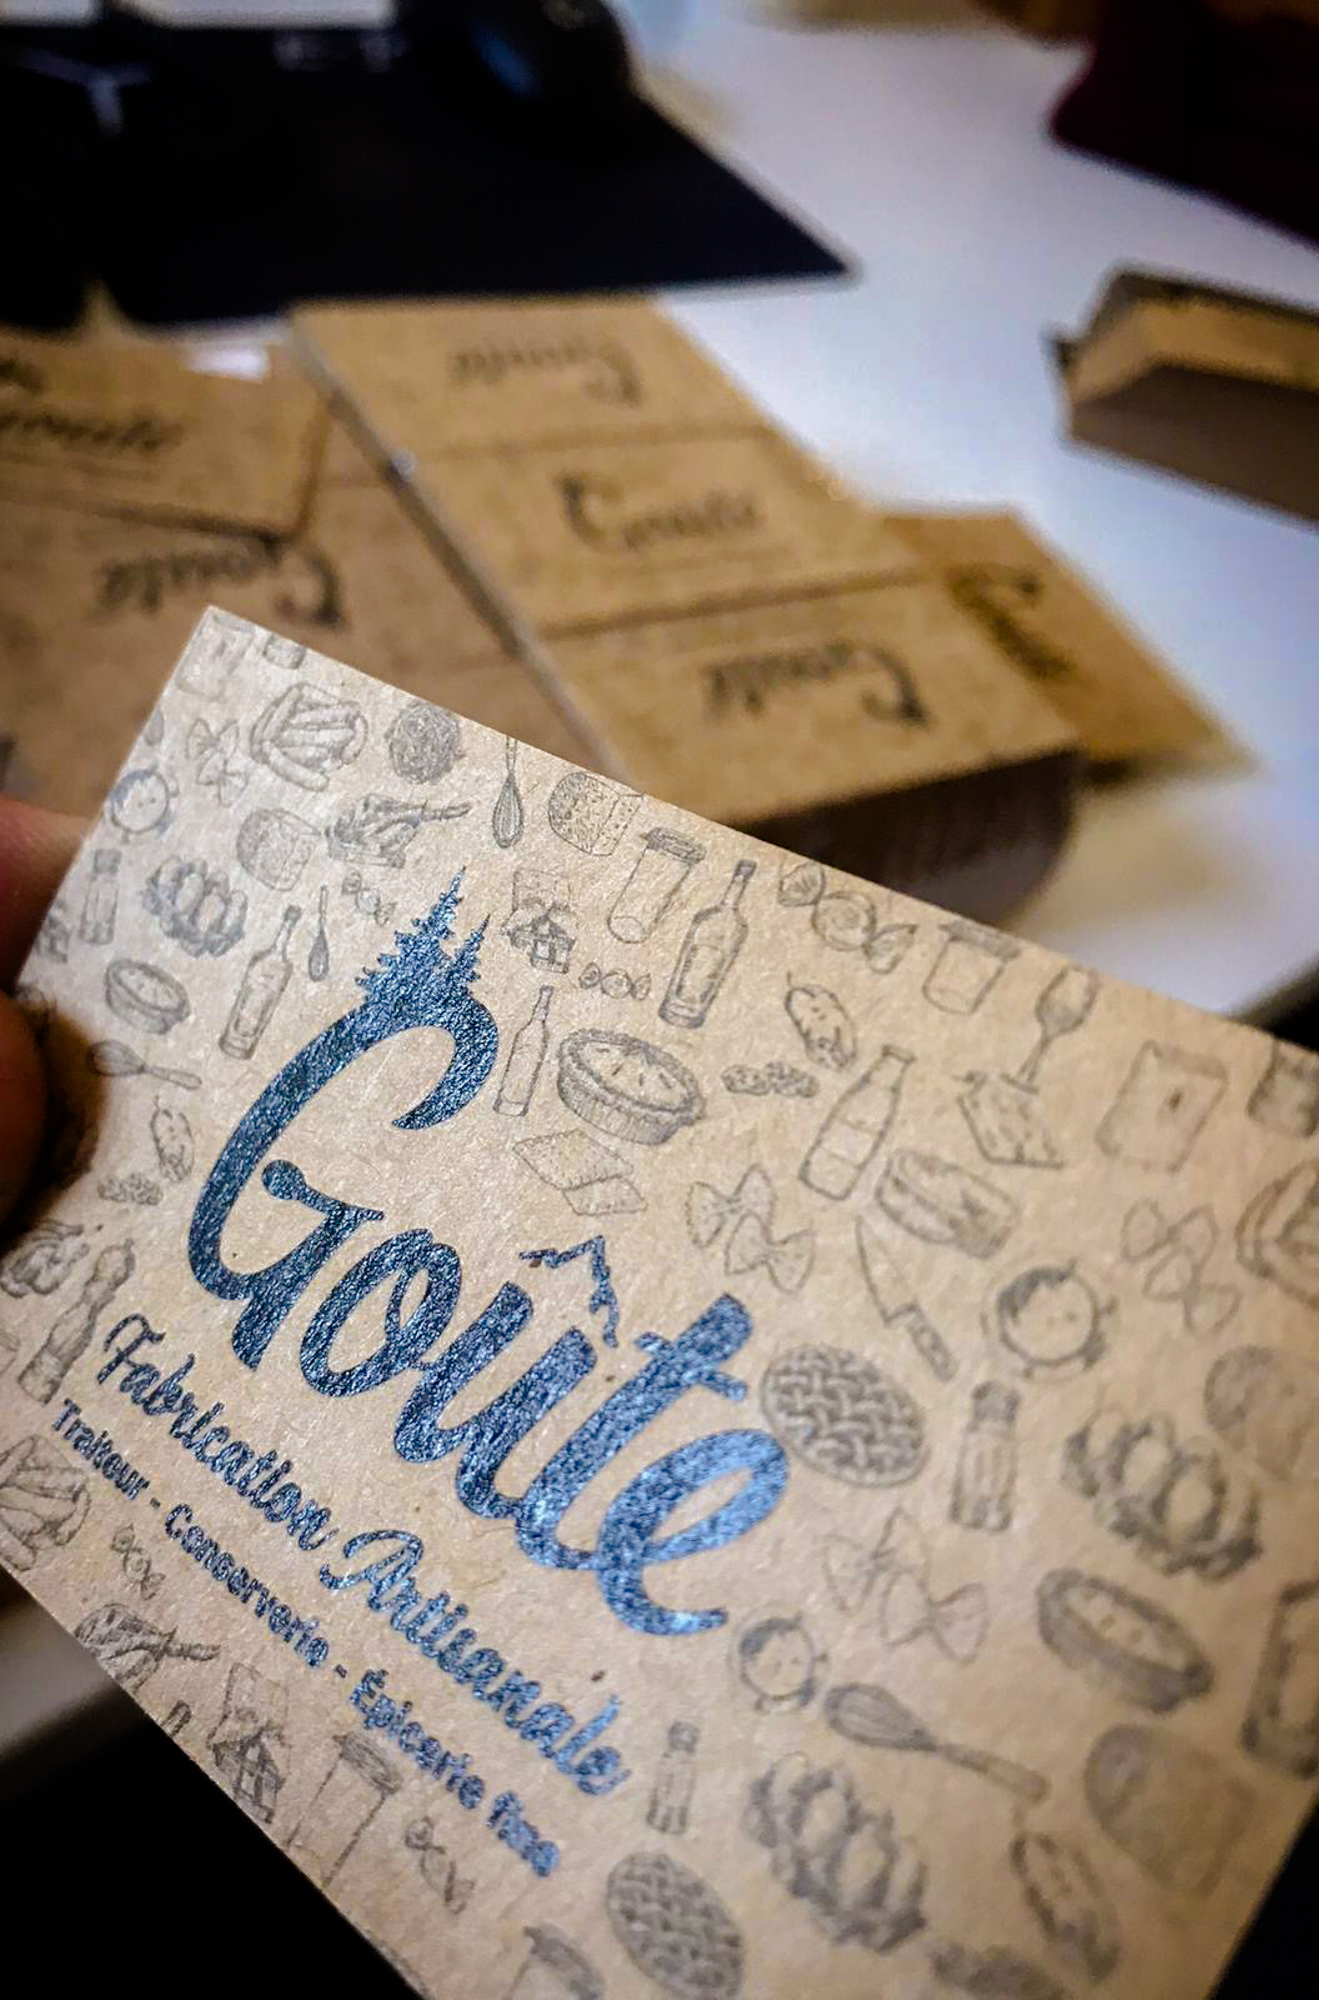 Goûte
Fabrication Artisanale
Traiteur - Conserverie - Épicerie fine
Goûte
Goûte
Goûte
Goûte